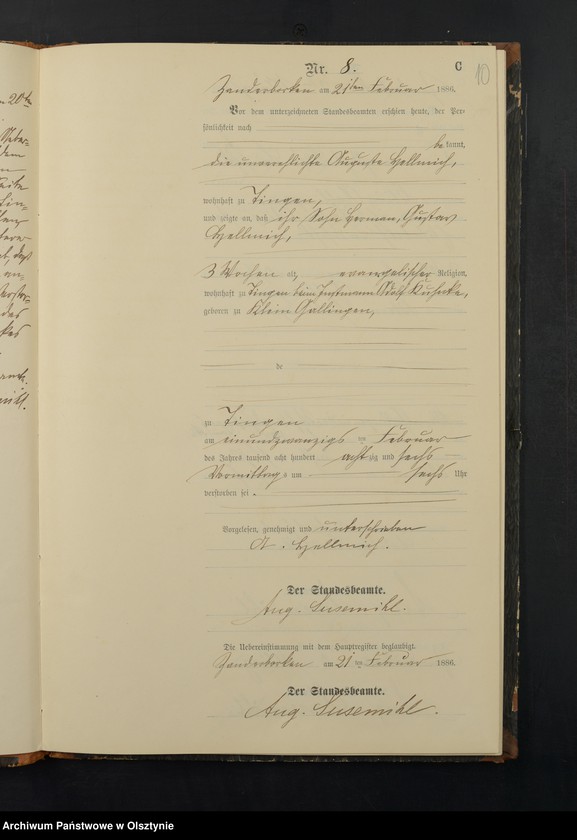 n 20ten
dem
Seite
des
Nr. 8.
C
10
Zanderborken am 21ten Februar 1886.
Vor dem unterzeichneten Standesbeamten erschien heute, der Per-
sönlichkeit nach
bekannt,
die unverehelichte Auguste Hellmich,
wohnhaft zu Tingen,
und zeigte an, daß ihr Sohn Herman, Gustav
Hellmich,
3 Wochen alt, evangelischer Religion,
wohnhaft zu Tingen beim Instmann Adolf Kuhnke,
geboren zu Klein Gallingen,
de
zu Tingen
am einundzwanzigs ten Februar
des Jahres tausend acht hundert acht zig und sechs
Vormittags um sechs Uhr
verstorben sei.
Vorgelesen, genehmigt und unterschrieben
A. Hellmich.
Der Standesbeamte.
Aug. Susemihl.
Die Uebereinstimmung mit dem Hauptregister beglaubigt.
Zanderborken am 21 ten Februar 1886.
Der Standesbeamte.
Aug. Susemihl.
Archiwum Państwowe w Olsztynie